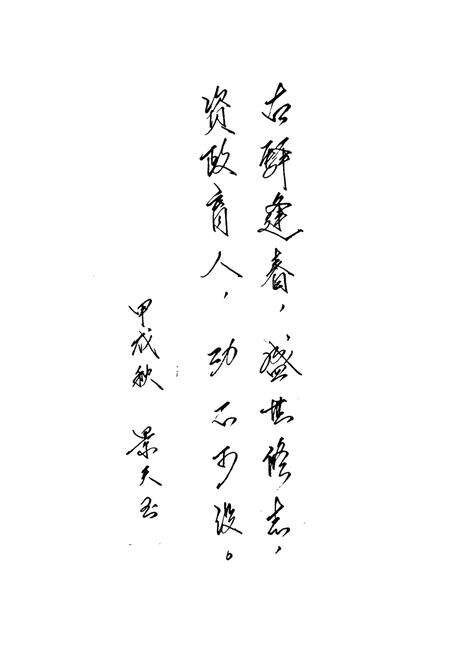 古逢春，盛世修志，
资政育人，功不可没。
甲戌秋 景天